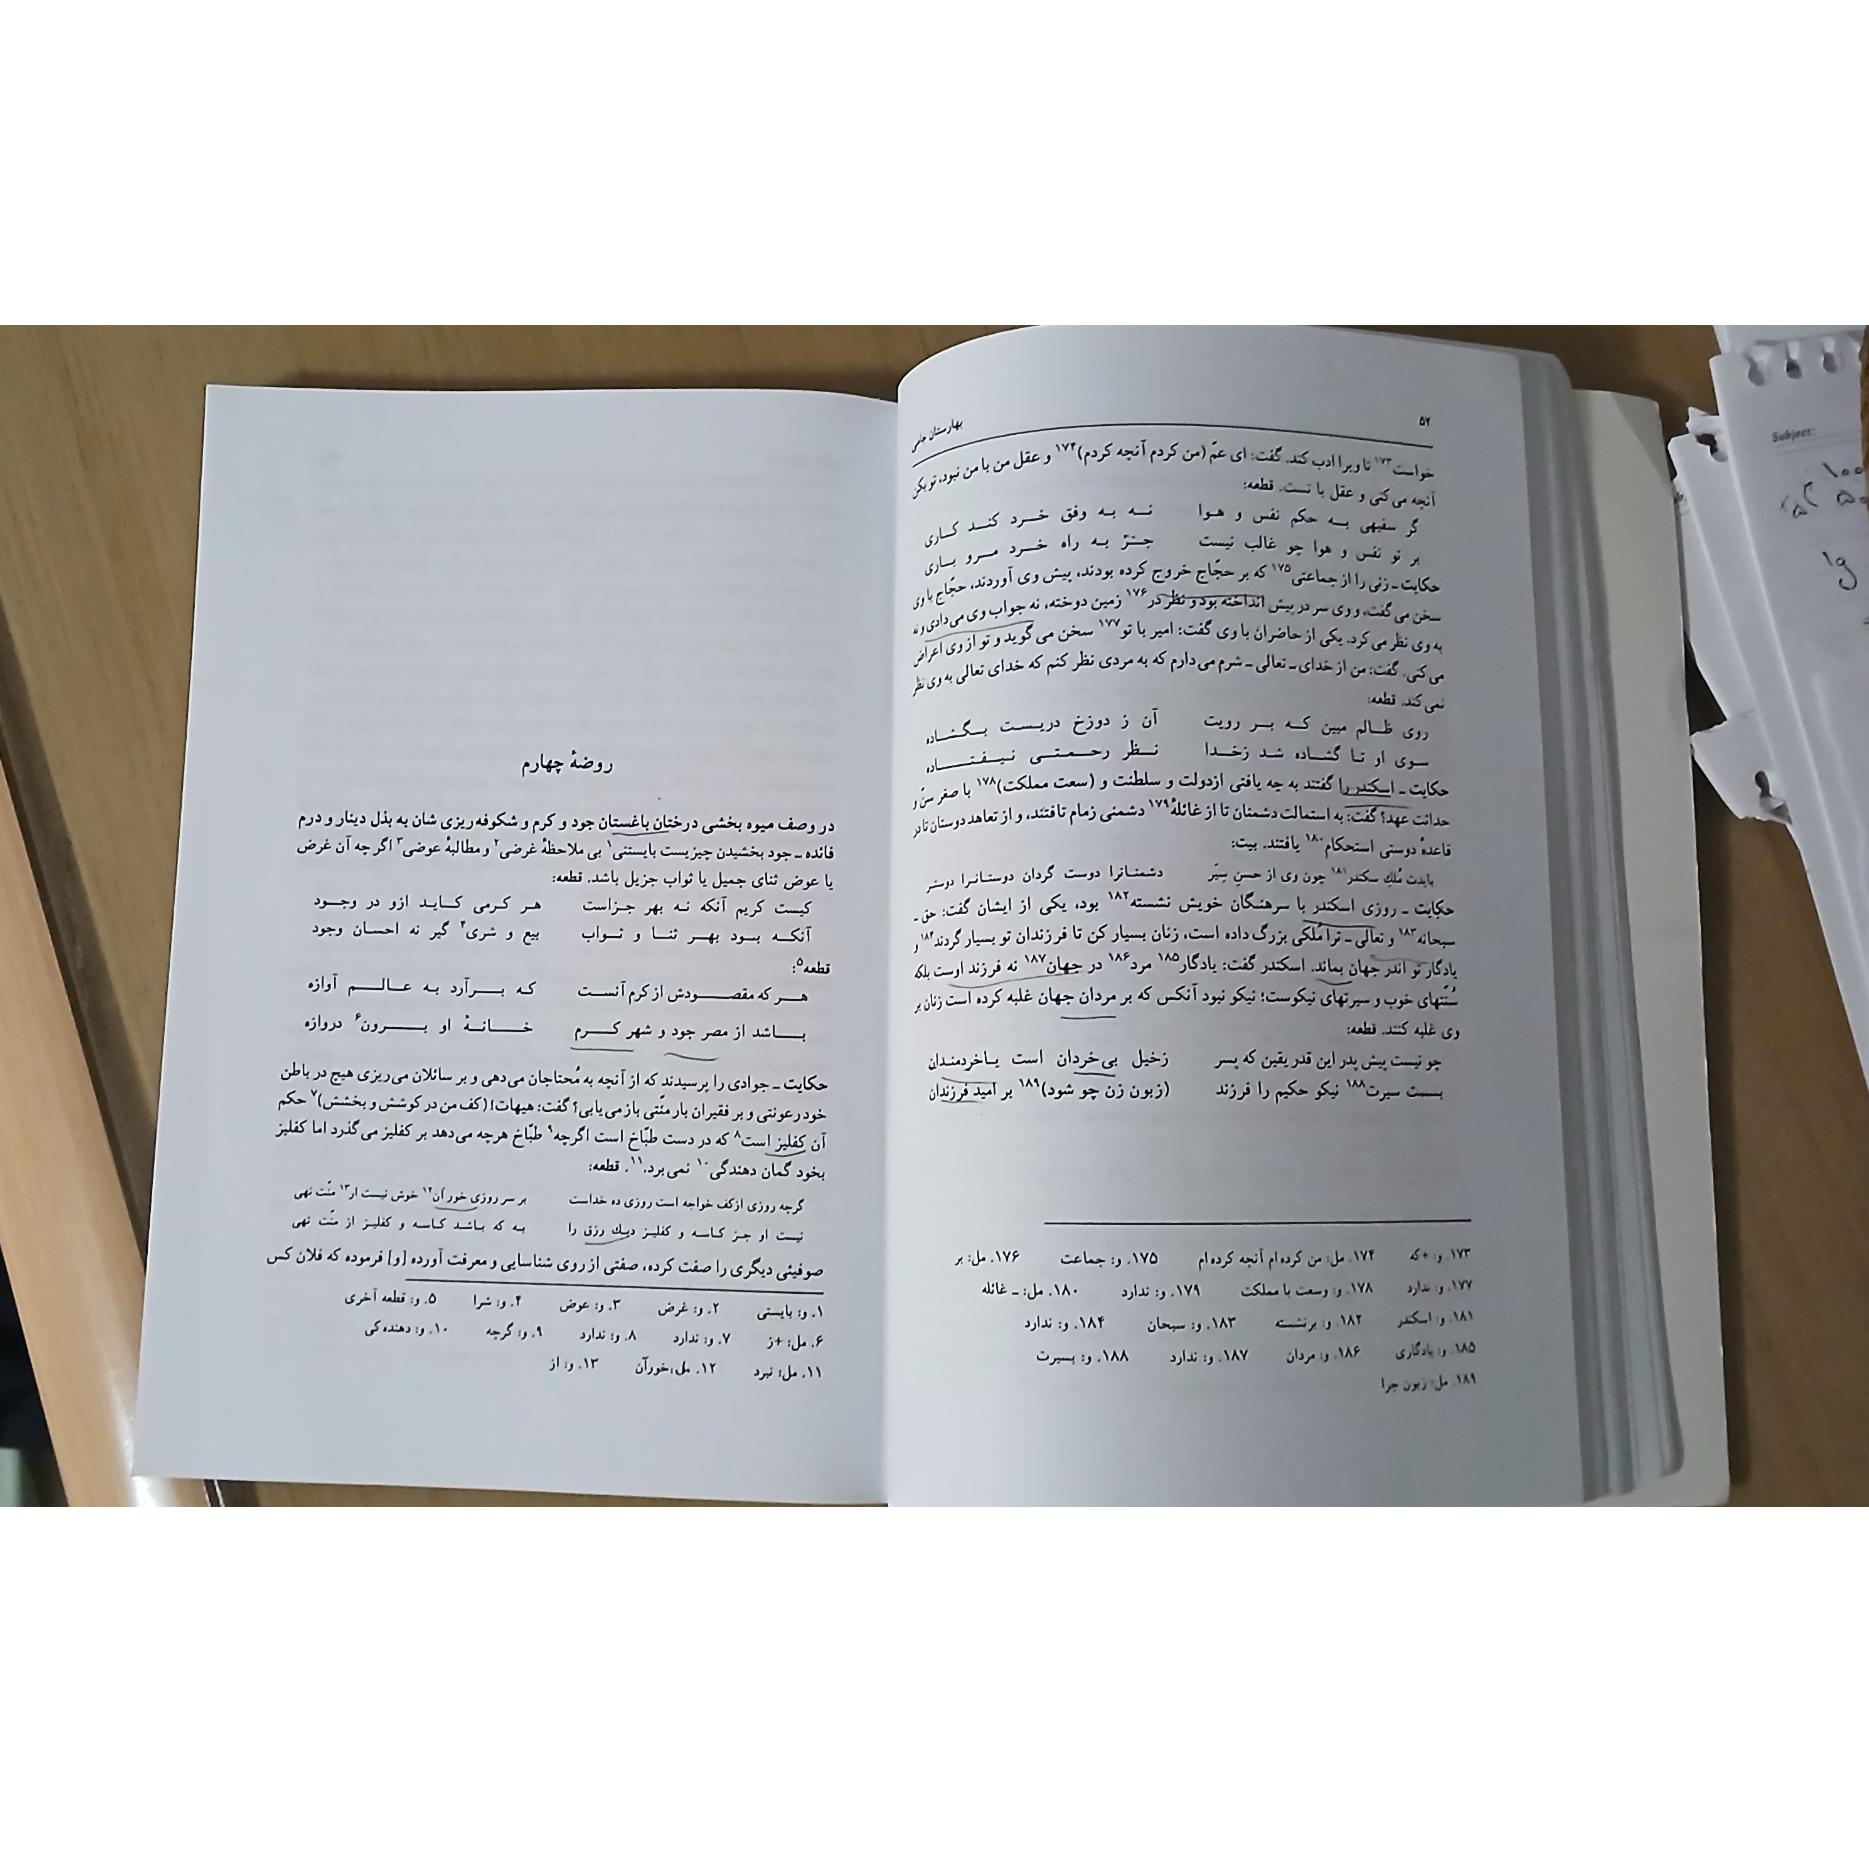 ۵۲
بهارستان جامی
خواست۱۷۳ تا ویرا ادب کند. گفت: ای عمّ (من کردم آنچه کردم)۱۷۴ و عقل من با من نبود، تو بکن
آنچه می‌کنی و عقل با تست. قطعه:
گر سفیهی به حکم نفس و هوا نه به وفق خرد کند کاری
بر تو نفس و هوا چو غالب نیست جز به راه خرد مرو باری
حکایت ـ زنی را از جماعتی۱۷۵ که بر حجّاج خروج کرده بودند، پیش وی آوردند، حجّاج با وی
سخن می‌گفت، و وی سر در پیش انداخته بود و نظر در۱۷۶ زمین دوخته، نه جواب وی می‌دادی و نه
به وی نظر می‌کرد. یکی از حاضران با وی گفت: امیر با تو۱۷۷ سخن می‌گوید و تو از وی اعراض
می‌کنی. گفت: من از خدای ـ تعالی ـ شرم می‌دارم که به مردی نظر کنم که خدای تعالی به وی نظر
نمی‌کند. قطعه:
روی ظالم مبین که بر رویت آن ز دوزخ دریست بگشاده
سوی او تا گشاده شد زخدا نظر رحمتی نیفتاده
حکایت ـ اسکندر را گفتند به چه یافتی ازدولت و سلطنت و (سعت مملکت)۱۷۸ با صغر سنّ و
حداثت عهد؟ گفت: به استمالت دشمنان تا از غائلهٔ۱۷۹ دشمنی زمام تافتند، و از تعاهد دوستان تا در
قاعدهٔ دوستی استحکام۱۸۰ یافتند. بیت:
بایدت مُلکِ سکندر۱۸۱ چون وی از حسنِ سِیَر دشمنانرا دوست گردان دوستانرا دوستر
حکایت ـ روزی اسکندر با سرهنگان خویش نشسته۱۸۲ بود، یکی از ایشان گفت: حق ـ
سبحانه۱۸۳ و تعالی ـ ترا مُلکی بزرگ داده است، زنان بسیار کن تا فرزندان تو بسیار گردند۱۸۴ و
یادگار تو اندر جهان بماند. اسکندر گفت: یادگار۱۸۵ مرد۱۸۶ در جهان۱۸۷ نه فرزند اوست بلکه
سُنّتهای خوب و سیرتهای نیکوست؛ نیکو نبود آنکس که بر مردان جهان غلبه کرده است زنان بر
وی غلبه کنند. قطعه:
چو نیست پیش پدر این قدر یقین که پسر زخیل بی‌خردان است یاخردمندان
بست سیرت۱۸۸ نیکو حکیم را فرزند (زبون زن چو شود)۱۸۹ بر امید فرزندان
۱۷۳. و: +که ۱۷۴. مل: من کرده‌ام آنچه کرده‌ام ۱۷۵. و: جماعت ۱۷۶. مل: بر
۱۷۷. و: ندارد ۱۷۸. و: وسعت با مملکت ۱۷۹. و: ندارد ۱۸۰. مل: ـ غائله
۱۸۱. و: اسکندر ۱۸۲. و: برنشسته ۱۸۳. و: سبحان ۱۸۴. و: ندارد
۱۸۵. و: یادگاری ۱۸۶. و: مردان ۱۸۷. و: ندارد ۱۸۸. و: بسیرت
۱۸۹. مل: زبون چرا
روضهٔ چهارم
در وصف میوه بخشی درختان باغستان جود و کرم و شکوفه‌ریزی شان به بذل دینار و درم
فائده ـ جود بخشیدن چیزیست بایستنی۱ بی ملاحظهٔ غرضی۲ و مطالبهٔ عوضی۳ اگر چه آن غرض
یا عوض ثنای جمیل یا ثواب جزیل باشد. قطعه:
کیست کریم آنکه نه بهر جزاست هر کرمی کاید ازو در وجود
آنکه بود بهر ثنا و ثواب بیع و شری۴ گیر نه احسان وجود
قطعه۵:
هر که مقصودش از کرم آنست که برآرد به عالم آوازه
باشد از مصر جود و شهر کرم خانهٔ او برون۶ دروازه
حکایت ـ جوادی را پرسیدند که از آنچه به مُحتاجان می‌دهی و بر سائلان می‌ریزی هیچ در باطن
خود رعونتی و بر فقیران بار منّتی باز می‌یابی؟ گفت: هیهات! (کف من در کوشش و بخشش)۷ حکم
آن کفلیز است۸ که در دست طبّاخ است اگرچه۹ طبّاخ هرچه می‌دهد بر کفلیز می‌گذرد اما کفلیز
بخود گمان دهندگی۱۰ نمی‌برد.۱۱. قطعه:
گرچه روزی ازکف خواجه است روزی ده خداست بر سر روزی خور آن۱۲ خوش نیست ار۱۳ منّت نهی
نیست او جز کاسه و کفلیز دیگ رزق را به که باشد کاسه و کفلیز از منّت تهی
صوفیئی دیگری را صفت کرده، صفتی از روی شناسایی و معرفت آورده [و] فرموده که فلان کس
۱. و: بایستی ۲. و: غرض ۳. و: عوض ۴. و: شرا ۵. و: قطعه آخری
۶. مل: +ز ۷. و: ندارد ۸. و: ندارد ۹. و: گرچه ۱۰. و: دهنده کی
۱۱. مل: نبرد ۱۲. مل: خورآن ۱۳. و: از
Subject: